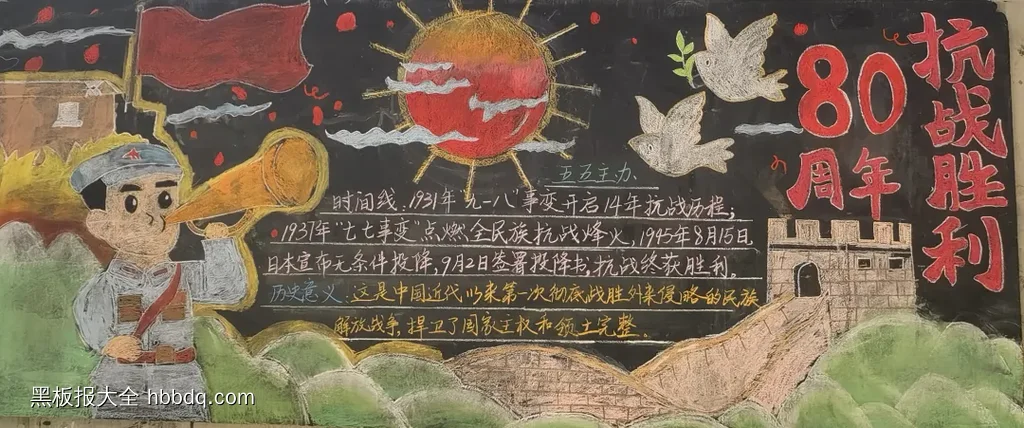 抗战胜利
80
周年
五五主办
时间线:1931年"九一八"事变开启14年抗战历程;
1937年"七七事变"点燃全民族抗战烽火,1945年8月15日,
日本宣布无条件投降,9月2日签署投降书,抗战终获胜利。
历史意义:这是中国近代以来第一次彻底战胜外来侵略的民族
解放战争,捍卫了国家主权和领土完整。
黑板报大全 hbbdq.com